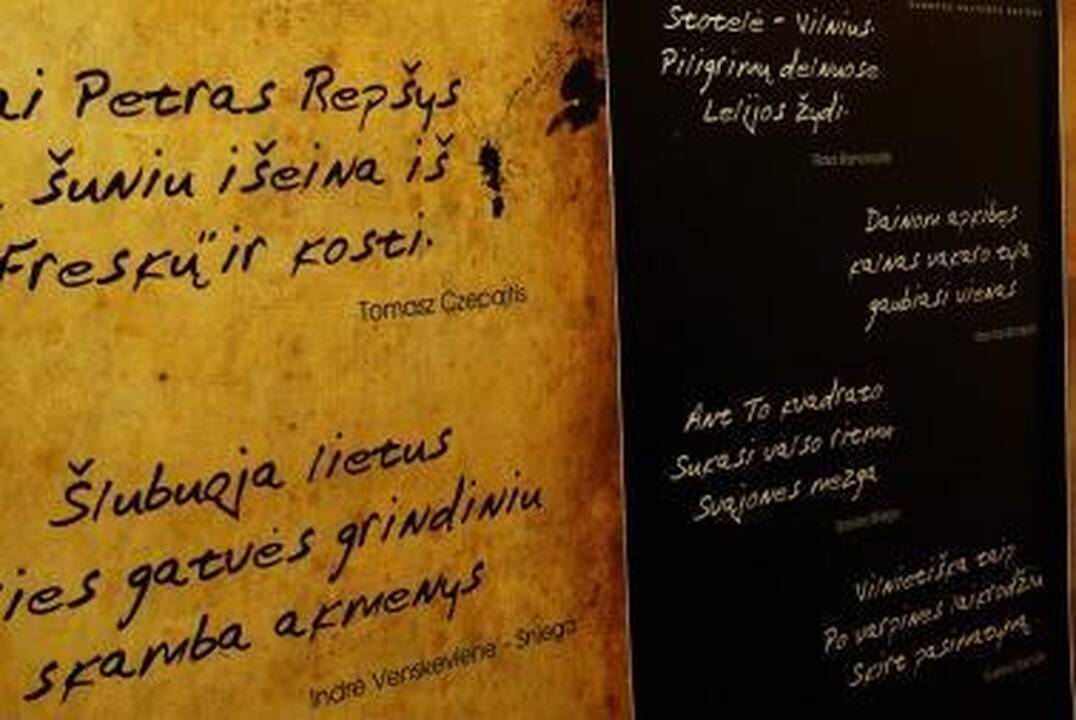 ai Petras Repšys
šuniu išeina iš
Freskų" ir kosti.
Tomasz Czepajtis
Šlubuoja lietus
ies gatvės grindiniu
skamba akmenys
Indrė Venskevienė - Sniega
Stotelė - Vilnius.
Piligrimų delnuose
Lelijos žydi.
Dainom apkibęs
kalnas vakaro tyla
gaubiasi vienas
Ant To kvadrato
Sukasi valso ritmu
Svajones mezga
Vilnietiška taip
Po varpinės laikrodžiu
Skirt pasimatymą